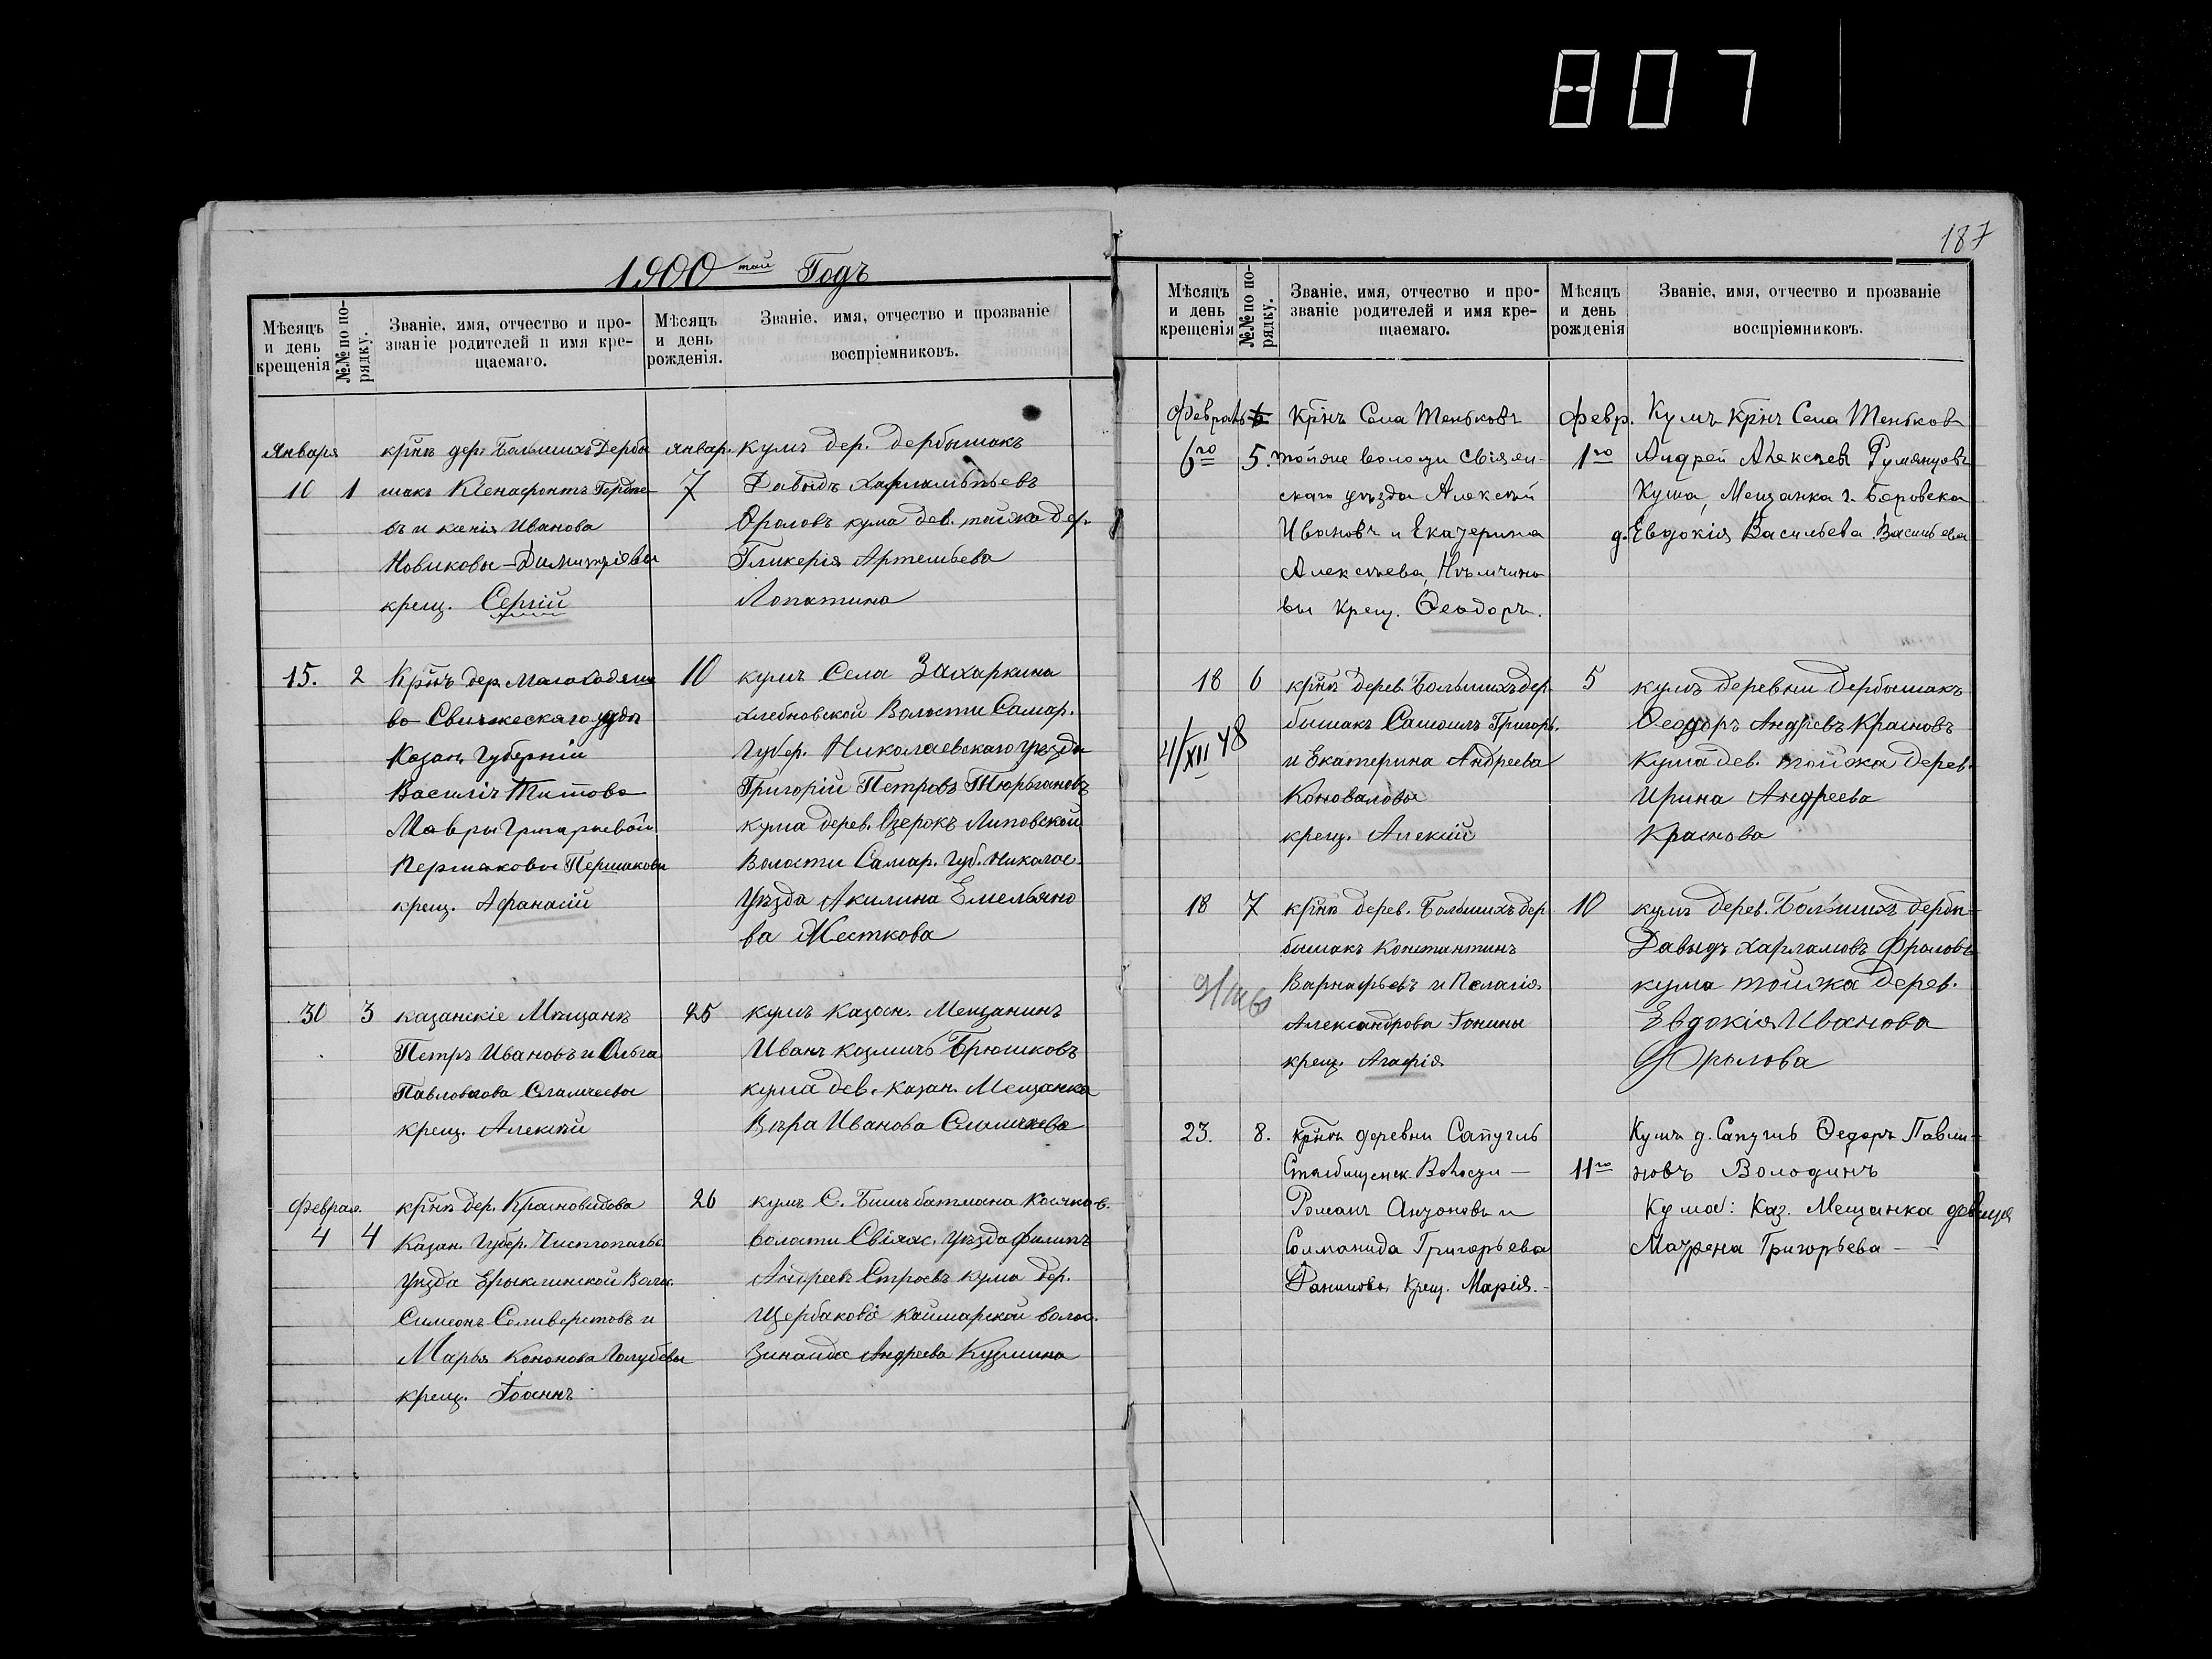 807
187
1900 тый Годъ
Мѣсяцъ и день крещенія
№№ по порядку.
Званіе, имя, отчество и прозваніе родителей и имя крещаемаго.
Мѣсяцъ и день рожденія.
Званіе, имя, отчество и прозваніе воспріемниковъ.
Января
10
1
крѣн дер. Большихъ Дербы
шакъ Ксенафонтъ
въ и ксенія Иванова
Новиковы-Димитріевы
крещ. Сергій
январ.
7
кумъ дер. дербышакъ
Давыдъ Харлампьевъ
Фроловъ кума дев. тойжо дер.
Гликерія Артемьева
Лопатина
15.
2
Крѣнъ дер.
во Свияжескаго уѣзда
Казан. Губерніи
Василій Титово
Мавры Григорьевой
Першаковы Першакови
крещ. Афанасій
10
кумъ Села Захаркина
хлебновской Волости Самар.
Губер. Николаевскаго уѣзда
Григорій Петровъ Тюрьгановъ
кума дерев. Озерокъ Липовской
Волости Самар. Губ. Николае.
Уѣзда Акилина Емельяно
ва Жесткова
30
3
казанскіе Мѣщане
Петръ Ивановъ и Ольга
крещ. Алексѣй
25
кумъ Казан. Мещанинъ
Иванъ Козмичъ Брюшковъ
кума дев. Казан. Мещанка
Вѣра Иванова
Феврал.
4
4
крѣн дер. Красновидова
Казан. Губер. Чистопольс.
Уѣзда Ерыклинской Воло.
Симеонъ Селиверстовъ и
Марья Кононова Голубевы
крещ. Іоаннъ
26
кумъ С. Бишъбатмана
волости Свіяж. Уѣзда Филипъ
Андреевъ Строевъ кума дер.
Щербакова Каймарской воло.
Зинаида Андреева Кузмина
Мѣсяцъ и день крещенія
№№ по порядку.
Званіе, имя, отчество и прозваніе родителей и имя крещаемаго.
Мѣсяцъ и день рожденія
Званіе, имя, отчество и прозваніе воспріемниковъ.
Февраль
6го
5.
Крѣнъ Села Теньковъ
тойже волости Свіяж-
скаго уѣзда Алексѣй
Ивановъ и Екатерина
Алексѣева, Нѣмчино
вы крещ. Ѳеодоръ.
Февр.
1го
Кумъ Крѣнъ Села Теньковъ
Андрей Алексѣевъ Румянцовъ
Кума, Мещанка г. Боровска
д. Евдокія Васильева Васильева
18
6
11/XII 48
крѣн дерев. Большихъ дер-
бышакъ Самоилъ Григорь.
и Екатерина Андреева
Коноваловы
крещ. Алексій
5
кумъ деревни Дербышакъ
Ѳеодоръ Андреевъ Красновъ
Кума дев. тойжа дерев.
Ирина Андреева
Краснова
18
7
крѣн дерев. Большихъ дер
бышакъ Константинъ
Варнафьевъ и Пелагія
Александрова Гонины
крещ. Агафія
10
кумъ дерев. Большихъ дербы-
Давыдъ Харламовъ Фроловъ
кума тойжа дерев.
Евдокія Иванова
Фролова
23.
8.
крѣн деревни Сапугиль
Столбищенск. Волости —
Романъ Антоновъ и
Соломонида Григорьева
Даниловы крещ. Марія.-
11го
Кумъ д. Сапугиль Ѳедоръ Павли-
новъ Володинъ
Кума: Каз. Мещанка девица
Матрена Григорьева — —